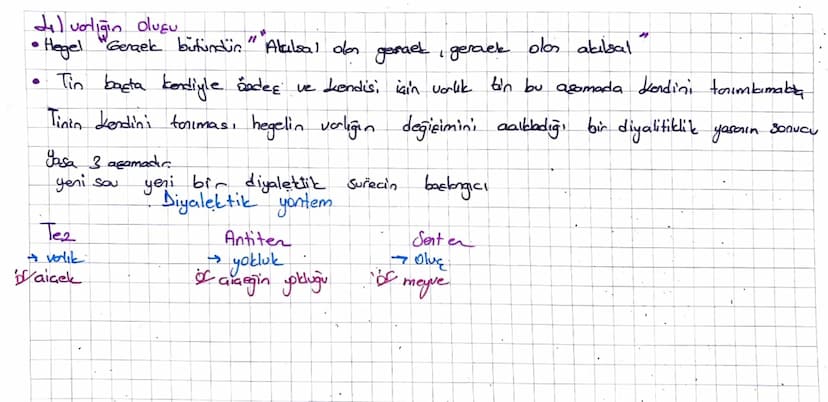 d) varlığın oluşu
• Hegel "Gerçek bütündür" "Akılsal olan gerçek, gerçek olan akılsal"
• Tin başta kendiyle özdeş ve kendisi için varlık tin bu aşamada kendini tanımamakta
Tinin kendini tanıması, hegelin varlığın değişimini açıkladığı bir diyalitiklik yasanın sonucu
Yasa 3 aşamadır.
yeni sav yeni bir diyalektik sürecin başlangıcı
Diyalektik yöntem
Tez Antitez Sentez
→ varlık → yokluk → oluş
ÖR çiçek ÖR çiçeğin yokluğu ÖR meyve